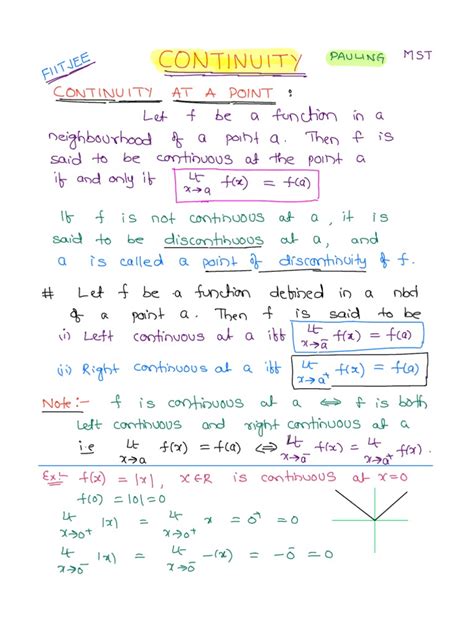 FIITJEE CONTINUITY PAULING MST
CONTINUITY AT A POINT :
Let f be a function in a
neighbourhood of a point a. Then f is
said to be continuous at the point a
if and only if Lt x→a f(x) = f(a)
If f is not continuous at a, it is
said to be discontinuous at a, and
a is called a point of discontinuity of f.
# Let f be a function defined in a nbd
of a point a. Then f is said to be
(i) Left continuous at a iff Lt x→a⁻ f(x) = f(a)
(ii) Right continuous at a iff Lt x→a⁺ f(x) = f(a)
Note:- f is continuous at a ⇔ f is both
left continuous and right continuous at a
i.e Lt x→a f(x) = f(a) ⇔ Lt x→a⁻ f(x) = Lt x→a⁺ f(x).
Ex:- f(x) = |x|, x∈R is continuous at x=0
f(0) = |0| = 0
Lt x→0⁺ |x| = Lt x→0⁺ x = 0⁺ = 0
Lt x→0⁻ |x| = Lt x→0⁻ -(x) = -0⁻ = 0